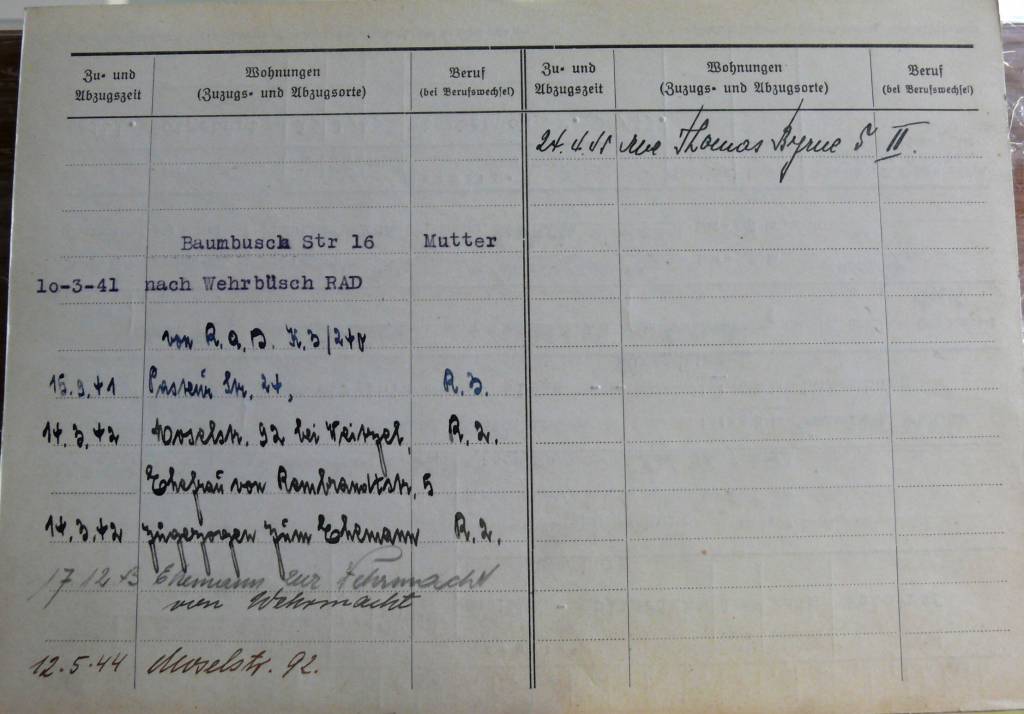 Zu- und Abzugszeit
Wohnungen (Zuzugs- und Abzugsorte)
Beruf (bei Berufswechsel)
Baumbusch Str 16 Mutter
10-3-41 nach Wehrbüsch RAD
von R.A.D. K. 3/240
15.9.41 Pasteur Str. 24, R.3.
14.3.42 Moselstr. 92 bei Weitzel, R.2.
Ehefrau von Rembrandtstr. 5
14.3.42 zugezogen zum Ehemann R.2.
17 12 43 Ehemann zur Wehrmacht
von Wehrmacht
12.5.44 Moselstr. 92.
Zu- und Abzugszeit
Wohnungen (Zuzugs- und Abzugsorte)
Beruf (bei Berufswechsel)
24.4.45 rue Thomas Byrne 5 II.